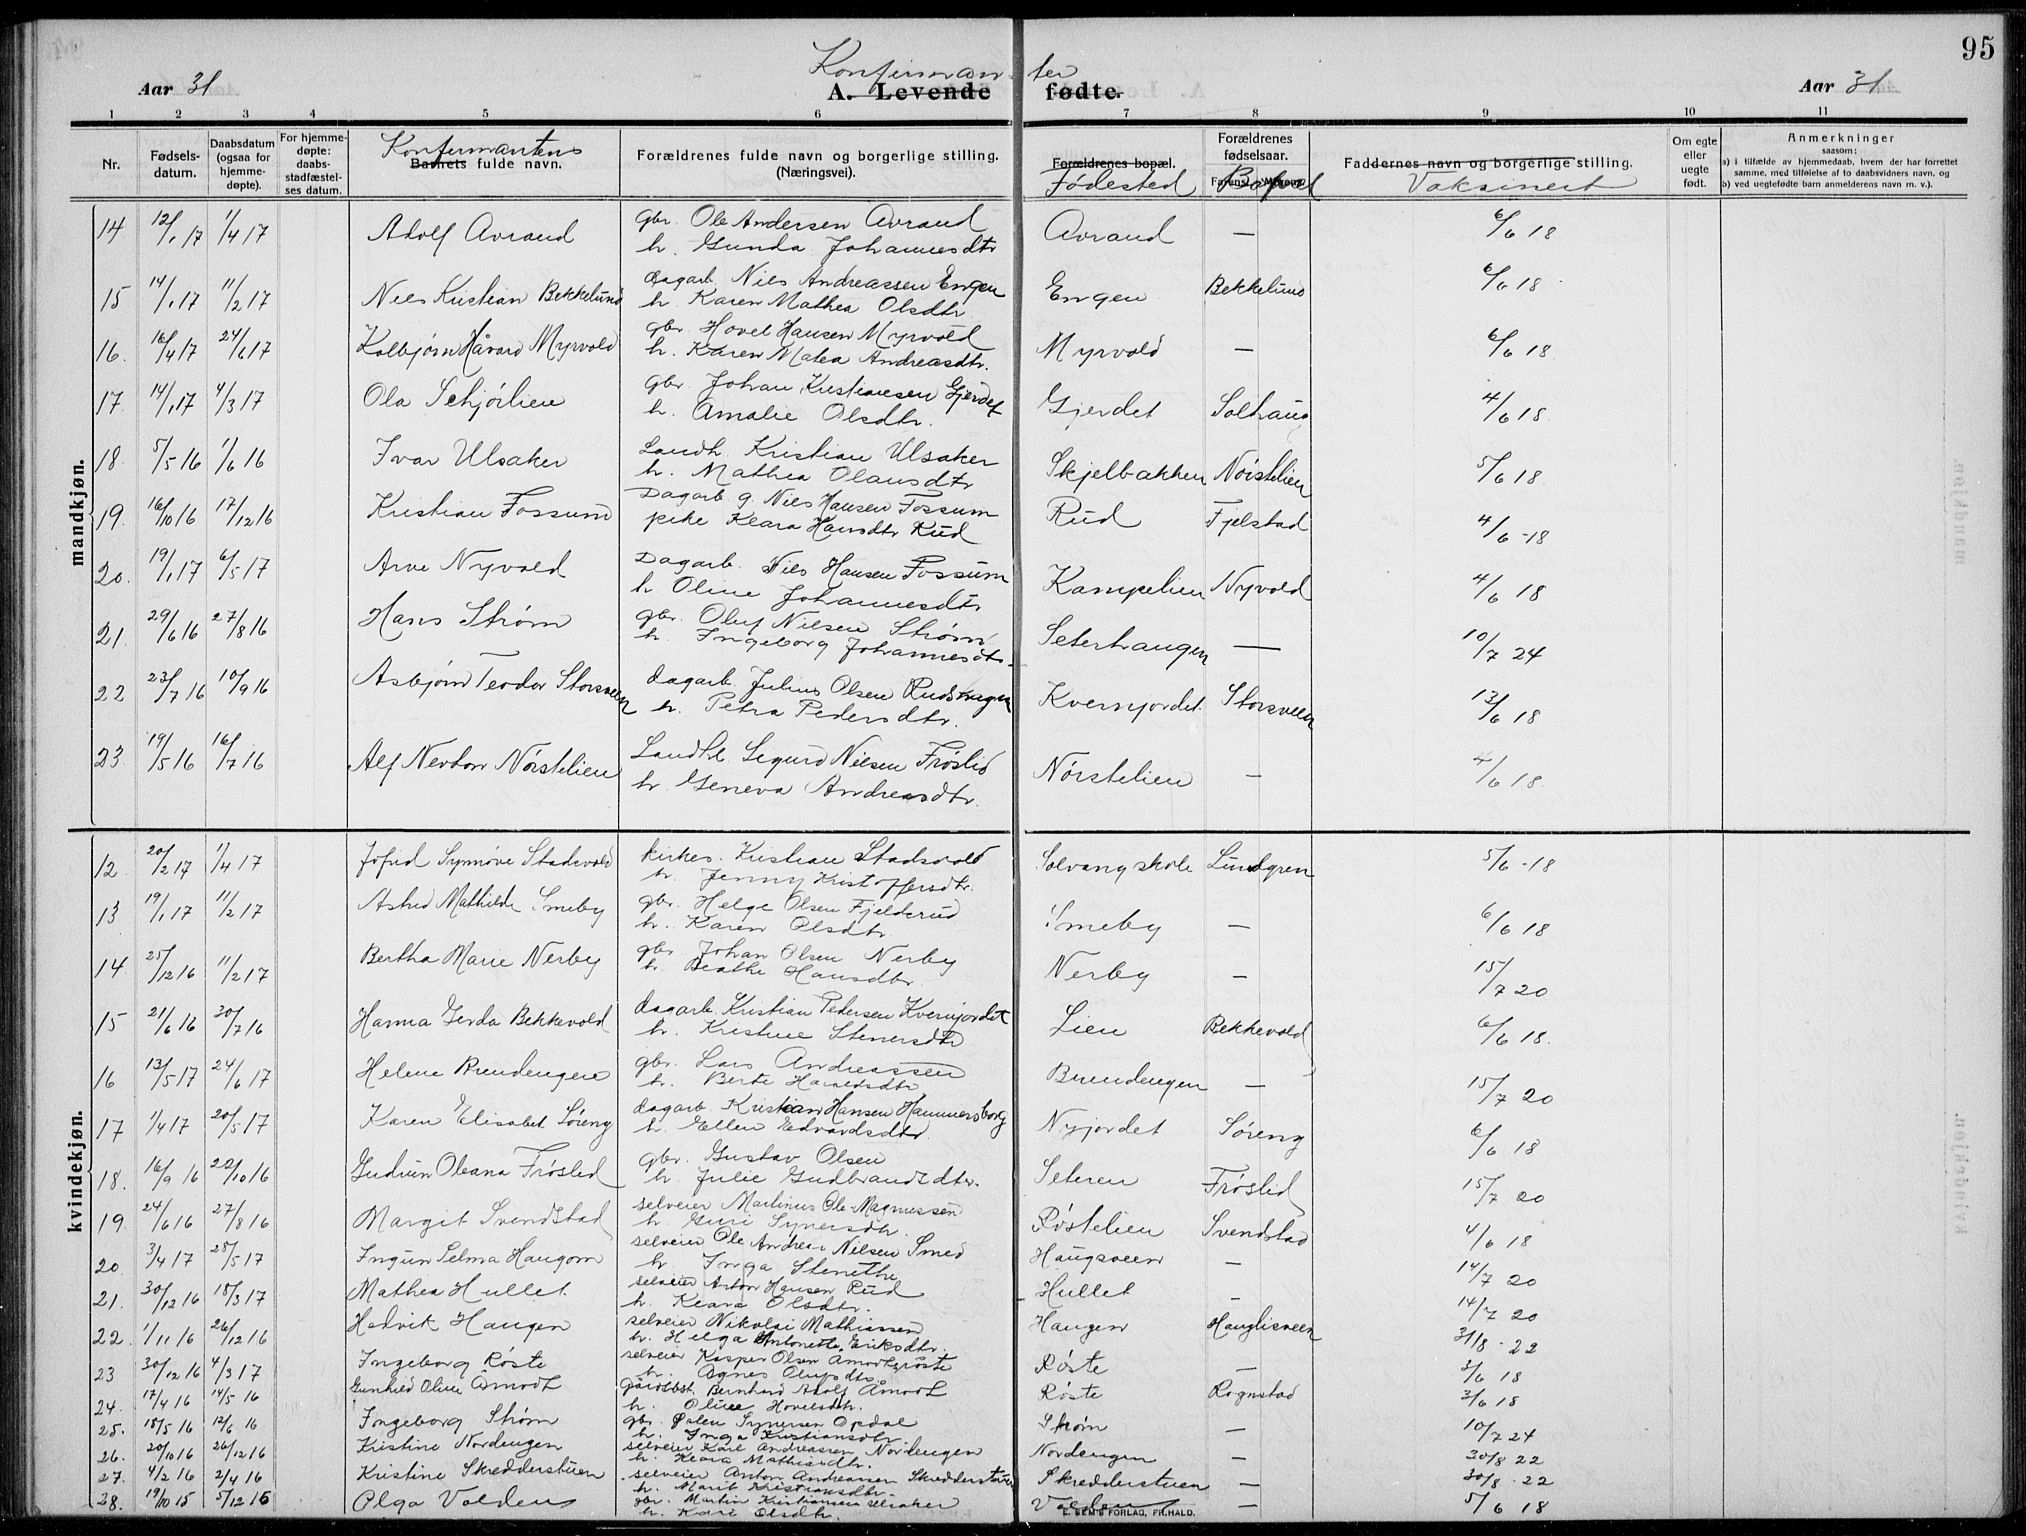 95
Konfirmanter
Aar 31 A. Levende fødte. Aar 31
1 2 3 4 5 6 7 8 9 10 11
Nr. Fødselsdatum. Daabsdatum (ogsaa for hjemmedøpte). For hjemmedøpte: daabsstadfæstelses datum. Konfirmantens Barnets fulde navn. Forældrenes fulde navn og borgerlige stilling. (Næringsvei). Forældrenes bopæl. Fødested Forældrenes fødselsaar. Farens Morens Bopel Faddernes navn og borgerlige stilling. Vaksinert Om egte eller uegte født. Anmerkninger saasom: a) i tilfælde av hjemmedaab, hvem der har forrettet samme, med tilføielse af to daabsvidners navn, og b) ved uegtefødte barn anmelderens navn m. v.).
mandkjøn.
14 12/1 17 1/4 17 Adolf Avraud gbr. Ole Andersen Avraud Avraud — 6/6 18
h. Gunda Johannesdtr
15 14/1 17 11/2 17 Niels Kristian Bekkelund dagarb. Niels Andreassen Engen Engen Bekkelund 6/6 18
h. Karen Mathea Olsdtr
16. 16/4 17 24/6 17 Kolbjørn Håvard Myrvold gbr. Hovel Hansen Myrvold Myrvold — 6/6 18
h. Karen Matea Andreasdtr.
17. 14/1 17 4/3 17 Ola Schjørlien gbr. Johan Kristiansen Gjerdet Gjerdet Solhaug 4/6 18
h. Amalie Olsdtr.
18. 5/5 16 1/6 16 Ivar Ulsaker Landh. Kristian Ulsaker Skjelbakken Nørstelien 5/6 18
h. Mathea Olausdtr
19. 16/10 16 17/12 16 Kristian Fossum Dagarb. g. Niels Hansen Fossum Rud Fjelstad 4/6 -18
pike Klara Hansdtr Rud
20. 19/1 17 6/5 17 Arve Nyvold Dagarb. Niels Hansen Fossum Kampelien Nyvold 4/6 18
h. Oline Johannesdtr
21. 29/6 16 27/8 16 Hans Strøm gbr. Oluf Nilsen Strøm Seterhaugen — 10/7 24
h. Ingeborg Johannesdtr.
22 23/7 16 10/9 16 Asbjørn Teodor Storsveen dagarb. Julius Olsen Rudshagen Kvernjordet Storsveen 13/6 18
h. Petra Pedersdtr.
23. 19/5 16 16/7 16 Alf Newton Nørstelien Landhl. Sigurd Nilsen Frøslid Nørstelien — 4/6 18
h. Geneva Andreasdtr.
kvindekjøn.
12. 20/2 17 1/4 17 Jofrid Synnøve Stadsvold kirkes. Kristian Stadsvold Solvang skole Lundgren 5/6 -18
h. Jenny Kristoffersdtr.
13 19/1 17 11/2 17 Astrid Mathilde Smeby gbr. Helge Olsen Fjelderud Smeby — 6/6 18
h. Karen Olsdtr
14 25/12 16 11/2 17 Bertha Marie Nerby gbr. Johan Olsen Nerby Nerby — 15/7 20
h. Beathe Hansdtr.
15 21/6 16 30/7 16 Hanna Gerda Bekkevold dagarb. Kristian Pedersen Kvernjordet Lien Bekkevold 6/6 18.
h. Kristine Stenersdtr
16 13/5 17 24/6 17 Helene Brendengen gbr. Lars Andreassen Brendengen — 15/7 20
h. Berte Haraldsdtr
17 1/4 17 20/5 17 Karen Elisabet Søreng dagarb. Kristian Hansen Hammersborg Nyjordet Søreng 6/6 18
h. Ellen Edvardsdtr.
18. 16/9 16 22/10 16 Gudrun Oleana Frøslid gbr. Gustav Olsen Seteren Frøslid 15/7 20
h. Julie Gudbrandsdtr.
19 24/6 16 27/8 16 Margit Svendstad selveier Martinus Ole Magnussen Røstelien Svendstad 4/6 18
h. Guri Synersdtr.
20. 3/4 17 28/5 17 Ingun Selma Haugom selveier Ole Andreas Nilsen Smed Haugsveen — 14/7 20
h. Inga
21. 30/12 16 18/3 17 Mathea Hullet selveier Anton Hansen Rud Hullet — 14/7 20
h. Klara Olsdtr.
22. 1/11 16 26/12 16 Hedvik Haugen selveier Nikolai Mathiassen Haugen Hauglisveen 31/8 - 22
h. Helga Antonette Eriksdtr.
23 30/12 16 4/3 17 Ingeborg Røste selveier Kasper Olsen Åmodtsrøste Røste — 3/6 18
h. Agnes Olufsdtr
24. 17/4 16 14/5 16 Gunhild Oline Åmodt gårdbst. Bernhard Adolf Åmodt Røste Rognstad 3/6 18
h. Oline Hovelsdtr.
25. 18/5 16 12/6 16 Ingeborg Strøm gbr. Østen Synersen Opdal Strøm — 10/7 24
h. Inga Kristiansdtr.
26. 20/10 16 26/12 16 Kristine Nordengen selveier Karl Andreassen Nordengen Nordengen — 30/8 22
h. Klara Mathiasdtr.
27. 4/2 16 2/4 16 Kristine Skredderstuen selveier Anton Andreassen Skredderstuen Skredderstuen — 30/8 - 22
h. Marit Kristiansdtr.
28. 19/10 15 5/12 15 Olga Volden gbr. Martin Kristiansen Ulsaker Volden — 5/6 18
h. Kari Olsdtr.
E. SEM'S FORLAG, FR.HALD.